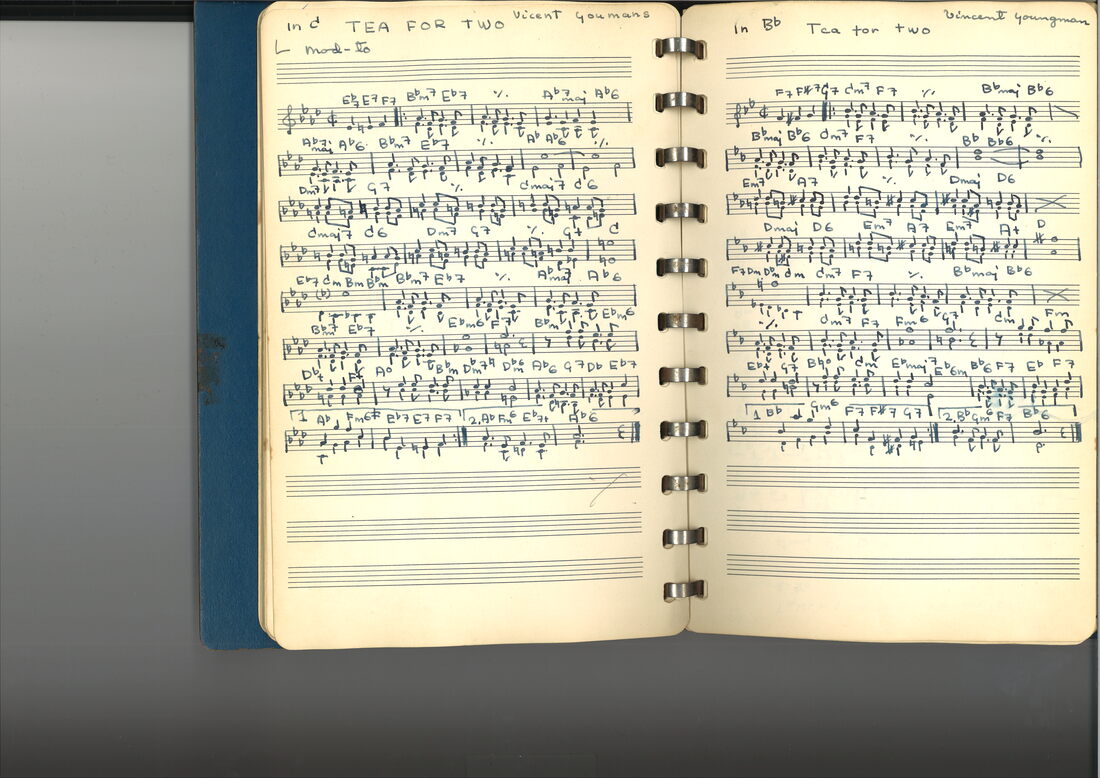 in C TEA FOR TWO Vicent Youmans
mod-to
Eb7 E7 F7 Bbm7 Eb7 ٪ Ab7maj Ab6
Ab7maj Ab6 Bbm7 Eb7 ٪ Ab Ab6
Dm7 G7 ٪ Cmaj7 C6
Cmaj7 C6 Dm7 G7 ٪ G7 C
Eb7 Cm Bm Bbm Bbm7 Eb7 ٪ Ab7maj Ab6
Bbm7 Eb7 ٪ Ebm6 F7 Bbm Ebm6
Db F7 Ao Bbm Dbm Ab6 G7 Db Eb7
1 Ab Fm6 Eb7 E7 F7 2. Ab Fm6 Eb7+ Ab6
in Bb Tea for two Vincent Youngman
F7 F#7 G7 Cm7 F7 ٪ Bbmaj Bb6
Bbmaj Bb6 Cm7 F7 ٪ Bb Bb6 ٪
Em7 A7 ٪ Dmaj D6
Dmaj D6 Em7 A7 Em7 A+ D
F7 Dm Dbm Cm Cm7 F7 ٪ Bbmaj Bb6
٪ Cm7 F7 Fm6 G7 Cm Fm
Eb+ G7 Cm Ebmaj7 Eb6m Bb6 F7 Eb F7
1 Bb Gm6 F7 F#7 G7 2. Bb Gm6 F7 Bb6